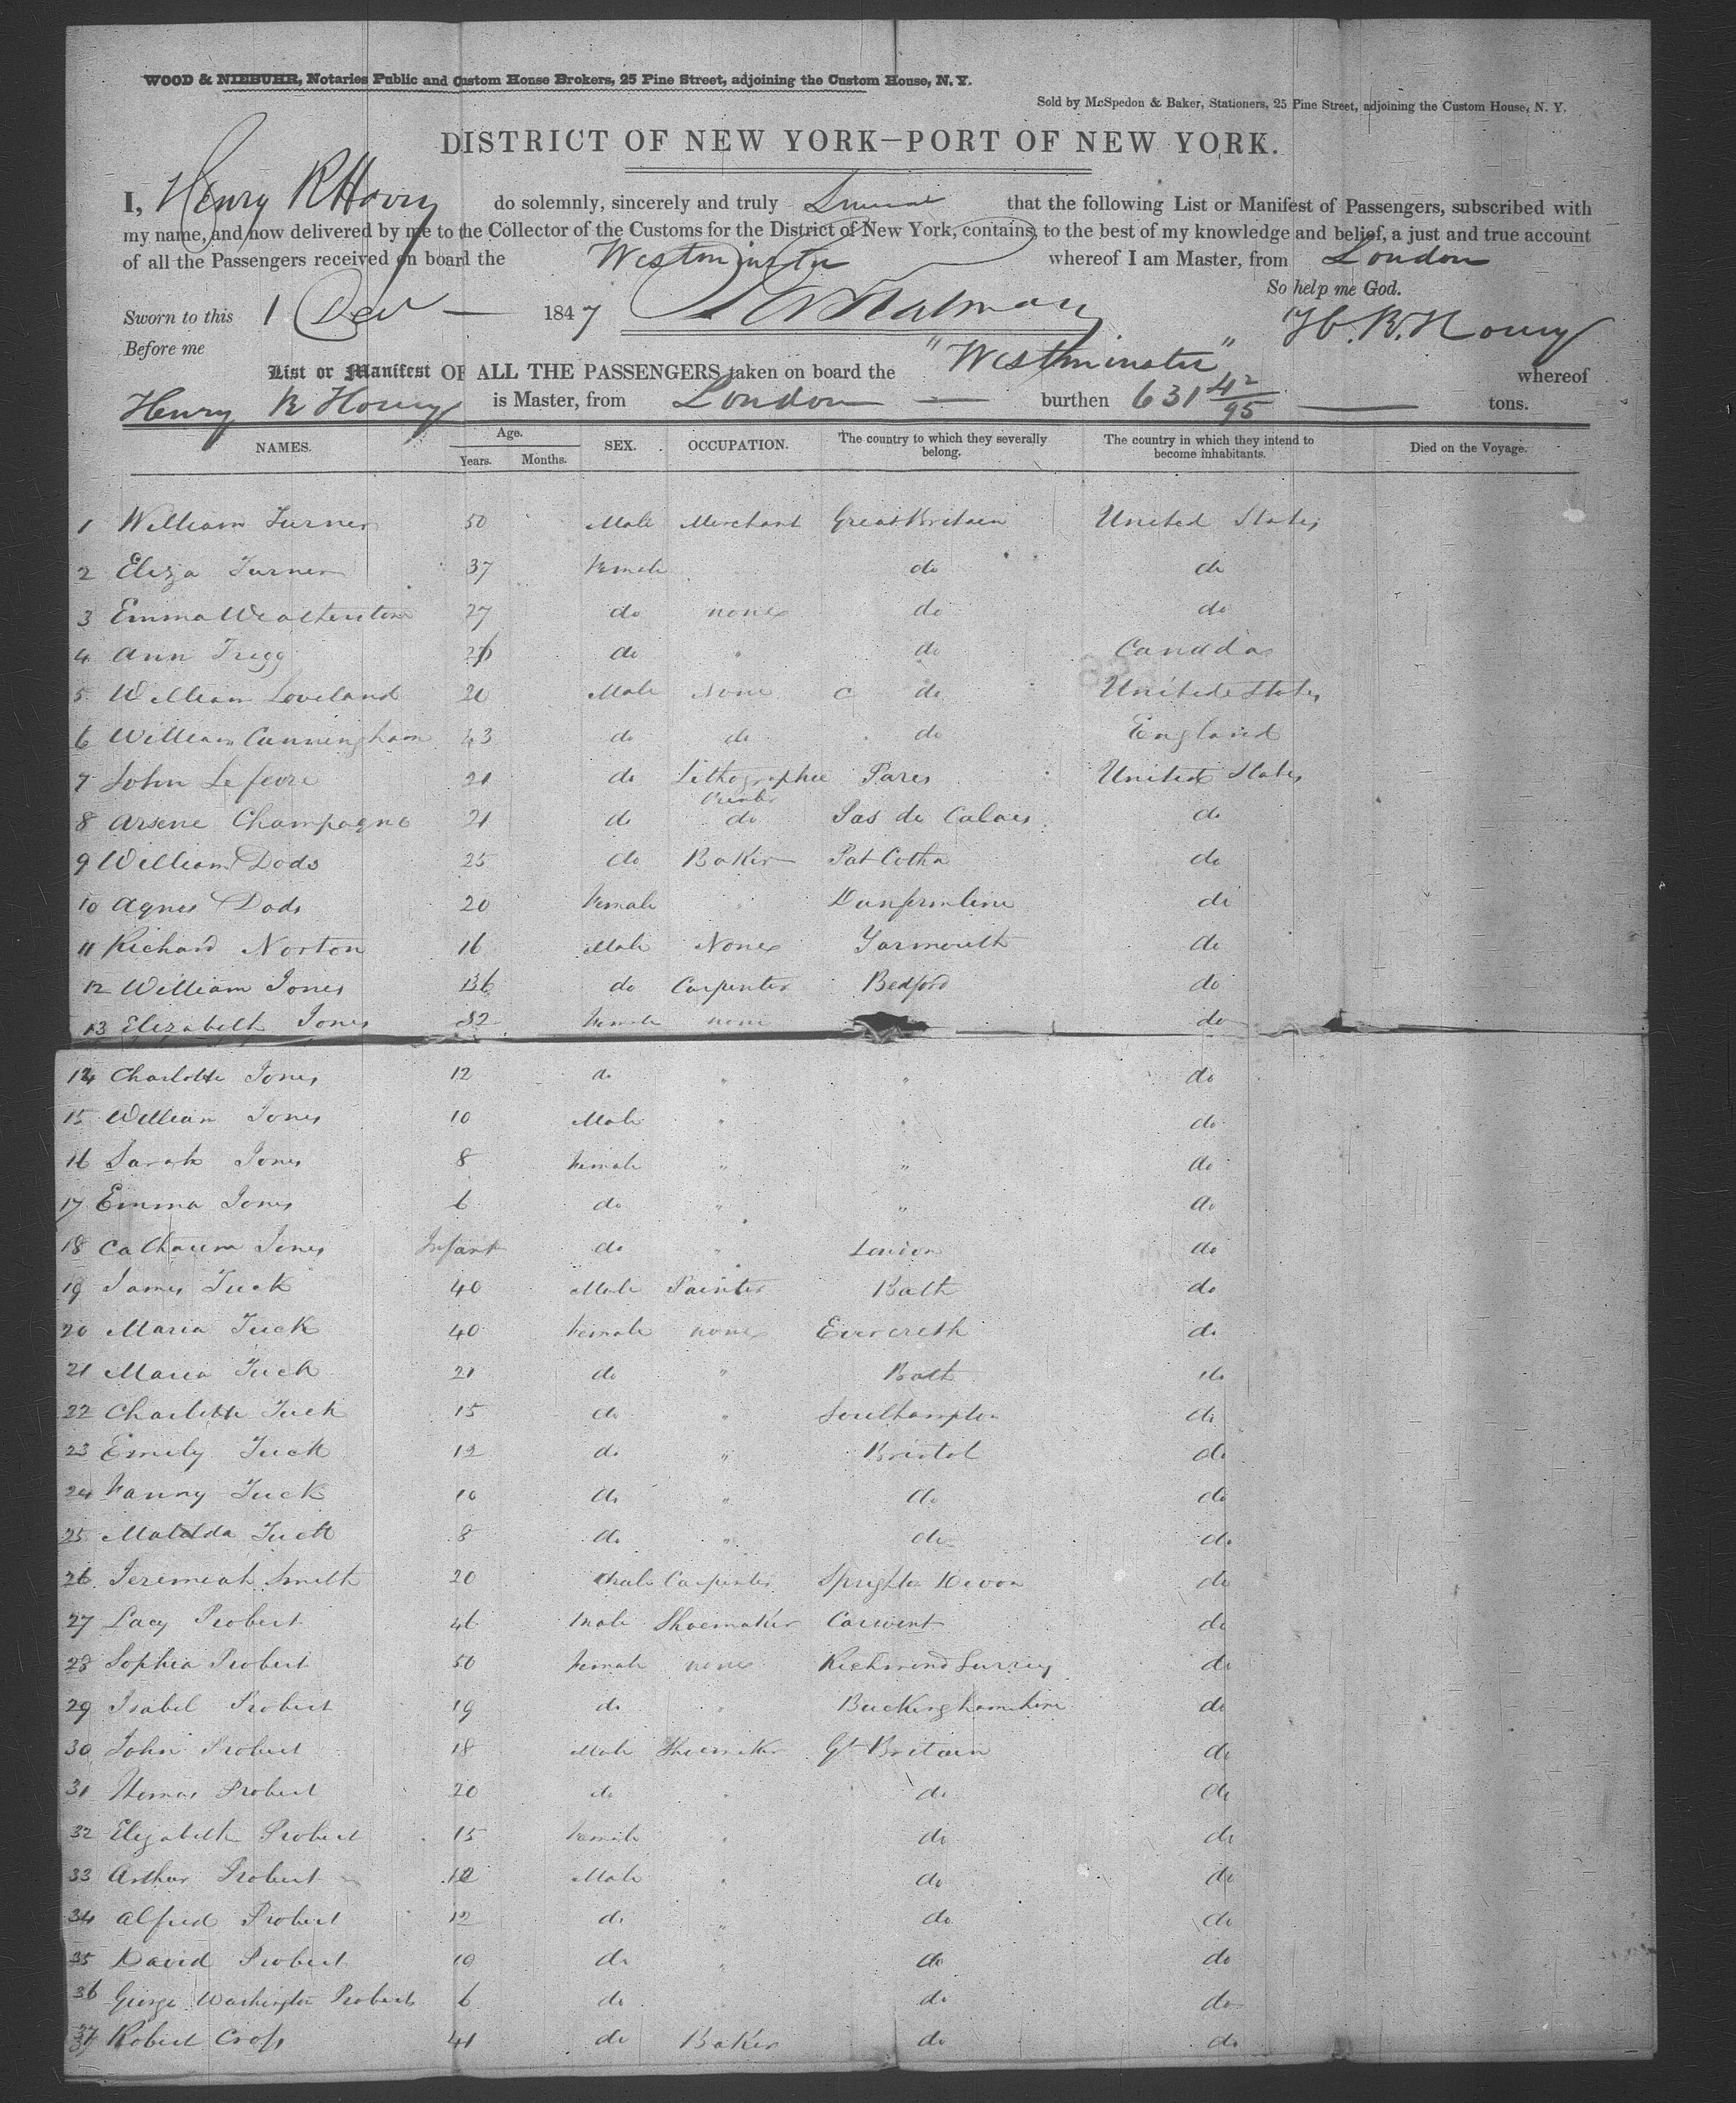 WOOD & NIEBUHR, Notaries Public and Custom House Brokers, 25 Pine Street, adjoining the Custom House, N. Y.
Sold by McSpedon & Baker, Stationers, 25 Pine Street, adjoining the Custom House, N. Y.
DISTRICT OF NEW YORK—PORT OF NEW YORK.
I, Henry R Hovey do solemnly, sincerely and truly Swear that the following List or Manifest of Passengers, subscribed with
my name, and now delivered by me to the Collector of the Customs for the District of New York, contains, to the best of my knowledge and belief, a just and true account
of all the Passengers received on board the Westminster whereof I am Master, from London
So help me God.
Sworn to this 1 Dec 1847
H. R. Hovey
Before me
List or Manifest OF ALL THE PASSENGERS taken on board the "Westminster" whereof
Henry R Hovey is Master, from London burthen 631 42/95 tons.
NAMES. Age. Years. Months. SEX. OCCUPATION. The country to which they severally belong. The country in which they intend to become inhabitants. Died on the Voyage.
1 William Turner 50 Male Merchant Great Britain United States
2 Eliza Turner 37 Female do do
3 Emma 27 do none do do
4 Ann Tregg do " do Canada
5 William Loveland 20 Male None do United States
6 William Cunningham 43 do do do England
7 John Lefevre 21 do Lithographic Printer Paris United States
8 Arsene Champagne 21 do do Pas de Calais do
9 William Dods 25 do Baker do
10 Agnes Dods 20 Female " Dunfermline do
11 Richard Norton 16 Male None Yarmouth do
12 William Jones 36 do Carpenter Bedford do
13 Elizabeth Jones 32 Female none do
14 Charlotte Jones 12 do " " do
15 William Jones 10 Male " " do
16 Sarah Jones 8 Female " " do
17 Emma Jones 6 do " " do
18 Catharine Jones Infant do " London do
19 James Tuck 40 Male Painter Bath do
20 Maria Tuck 40 Female none Evercreth do
21 Maria Tuck 21 do " Bath do
22 Charlotte Tuck 15 do " Southampton do
23 Emily Tuck 12 do " Bristol do
24 Fanny Tuck 10 do " do do
25 Matilda Tuck 8 do " do do
26 Jeremiah Smith 20 Male Carpenter Devon do
27 Lacy Probert 46 Male Shoemaker do
28 Sophia Probert 50 Female none Richmond Surrey do
29 Isabel Probert 19 do " Buckinghamshire do
30 John Probert 18 Male Shoemaker Gt Britain do
31 Thomas Probert 20 do " do do
32 Elizabeth Probert 15 Female " do do
33 Arthur Probert Male " do do
34 Alfred Probert 12 do " do do
35 David Probert 10 do " do do
36 George Washington Probert 6 do do do
37 Robert Cross 41 do Baker do do